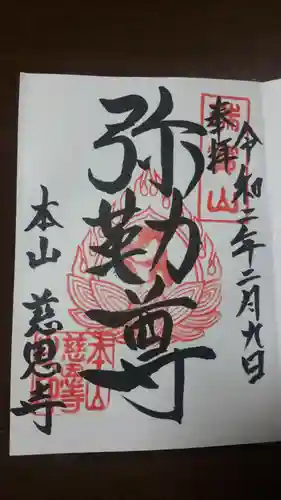 令和二年二月九日
奉拝
瑞寳山
弥勒尊
本山 慈恩寺
本山
慈恩寺